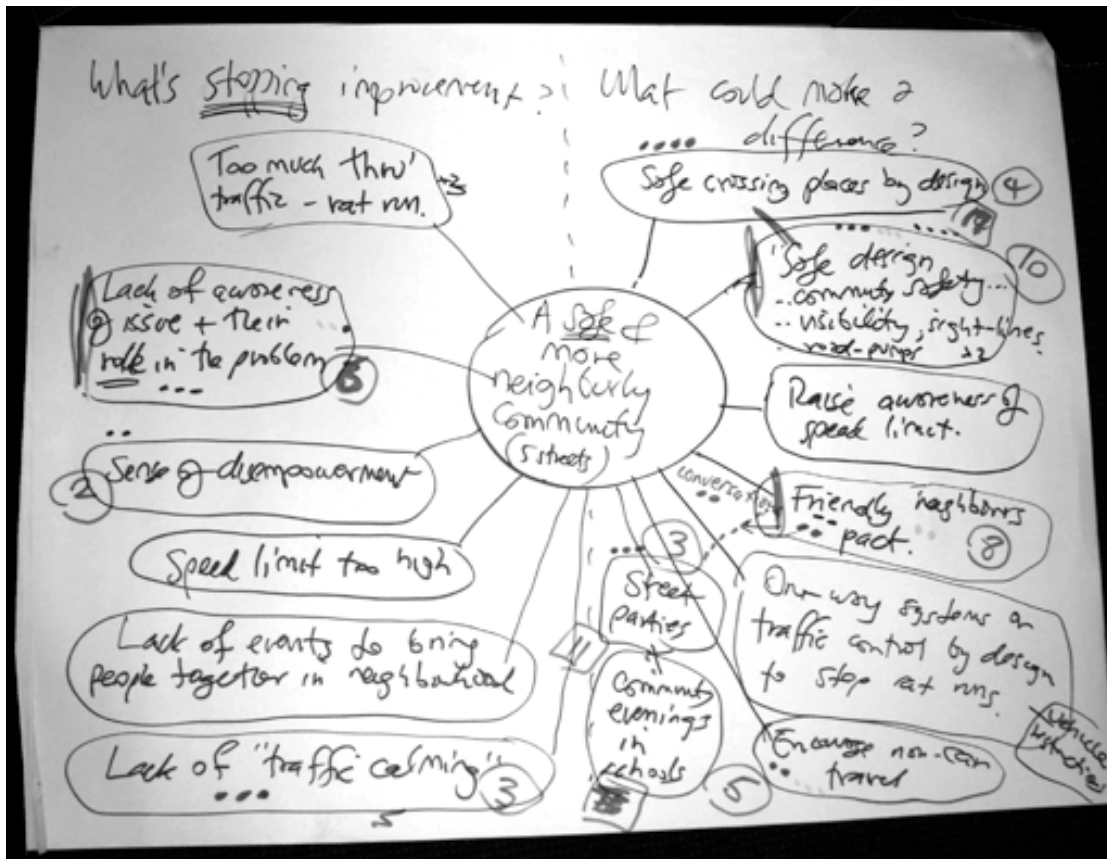 What's stopping improvement?
What could make a
difference?
Too much thro'
traffic - rat run.
Lack of awareness
of issue + their
role in the problem
Sense of disempowerment
2
Speed limit too high
Lack of events to bring
people together in neighbourhood
Lack of "traffic calming"
3
A safe &
more
neighbourly
Community
(5 streets)
Safe crossing places by design
4
17
Safe design
.. community safety...
.. visibility, sight-lines
10
Raise awareness of
speed limit.
Friendly neighbours
pact.
8
conversations
3
Street
parties
11
Community
evenings
in
schools
5
One way systems or
traffic control by design
to stop rat runs.
Vehicle
Encourage non-car
travel